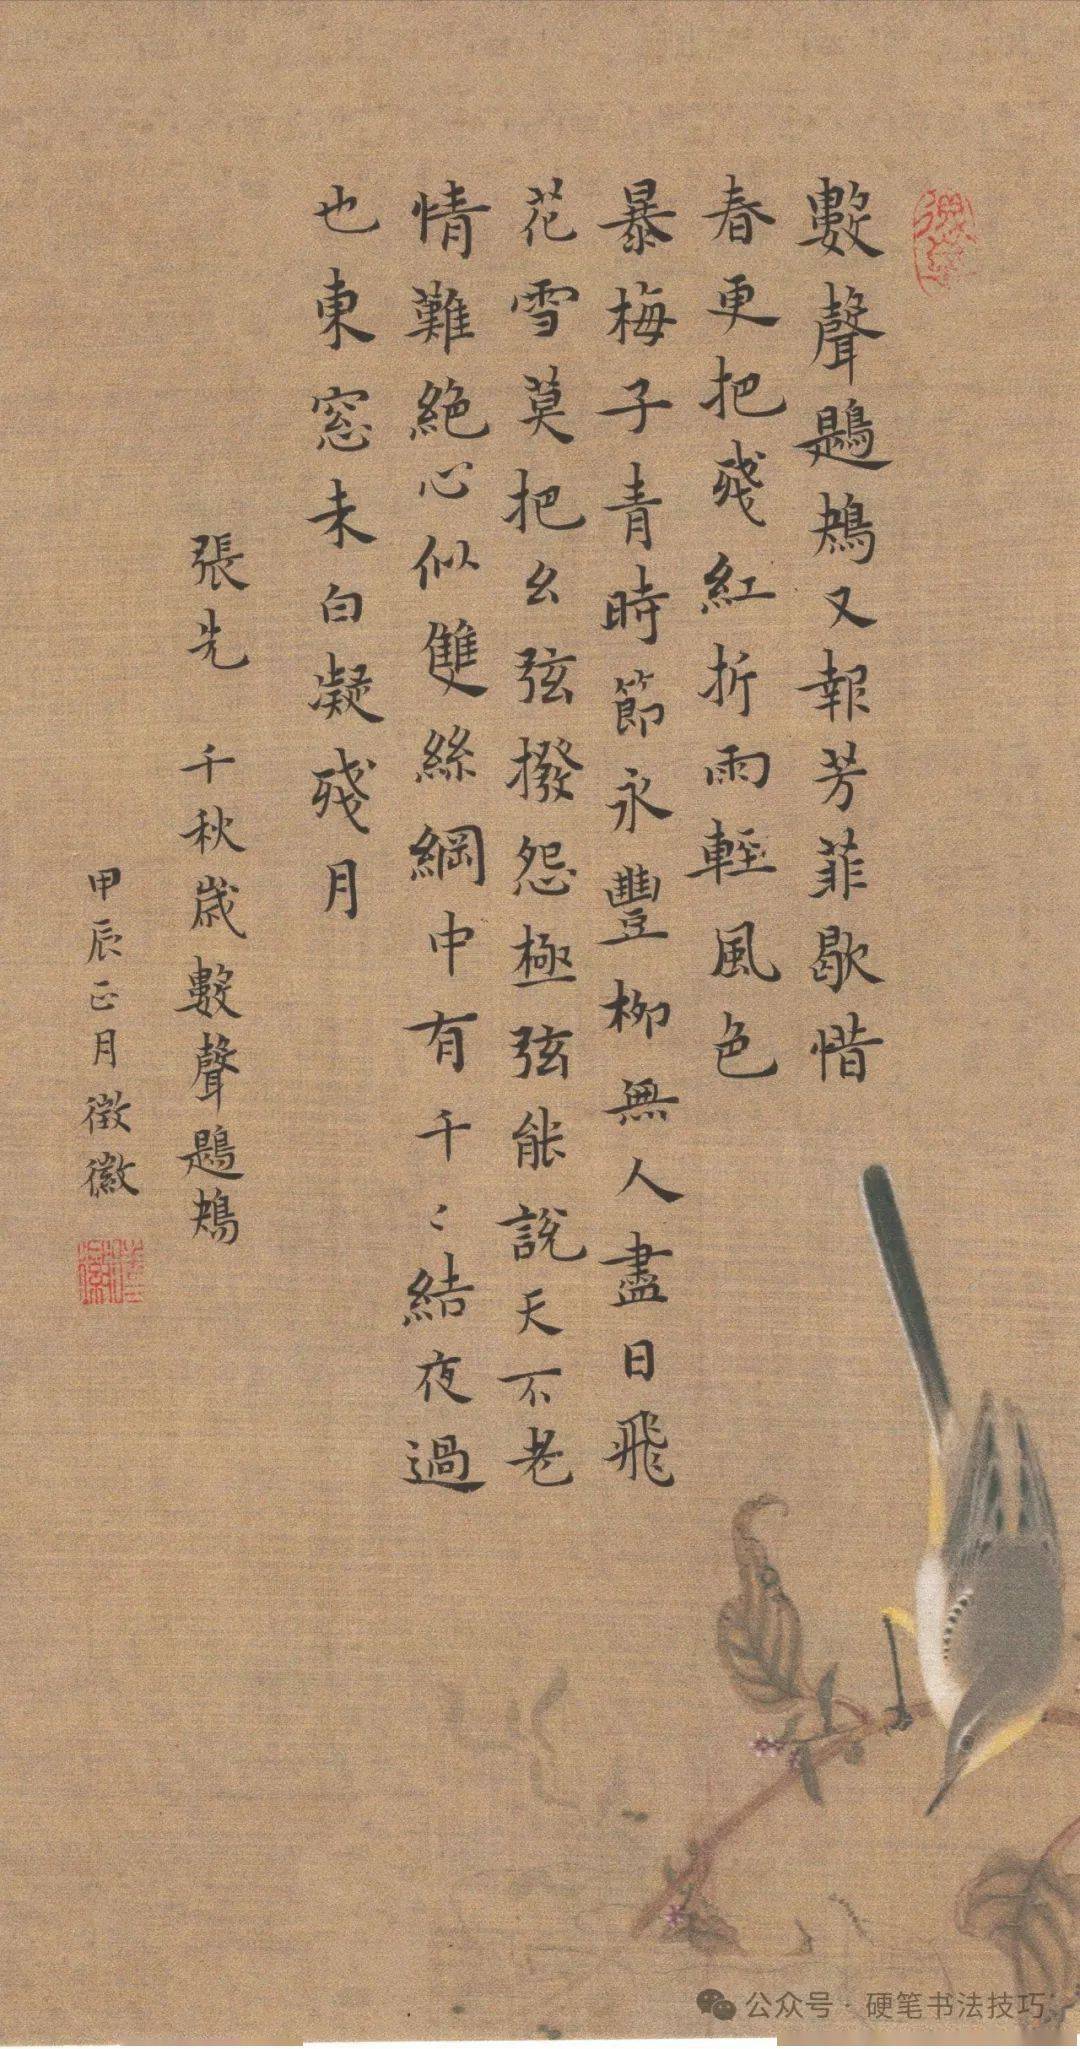 數聲鶗鴂又報芳菲歇惜
春更把殘紅折雨輕風色
暴梅子青時節永豐柳無人盡日飛
花雪莫把幺弦撥怨極弦能說天不老
情難絕心似雙絲網中有千〻結夜過
也東窓未白凝殘月
張先 千秋歲數聲鶗鴂
甲辰正月徵徽
公众号·硬笔书法技巧